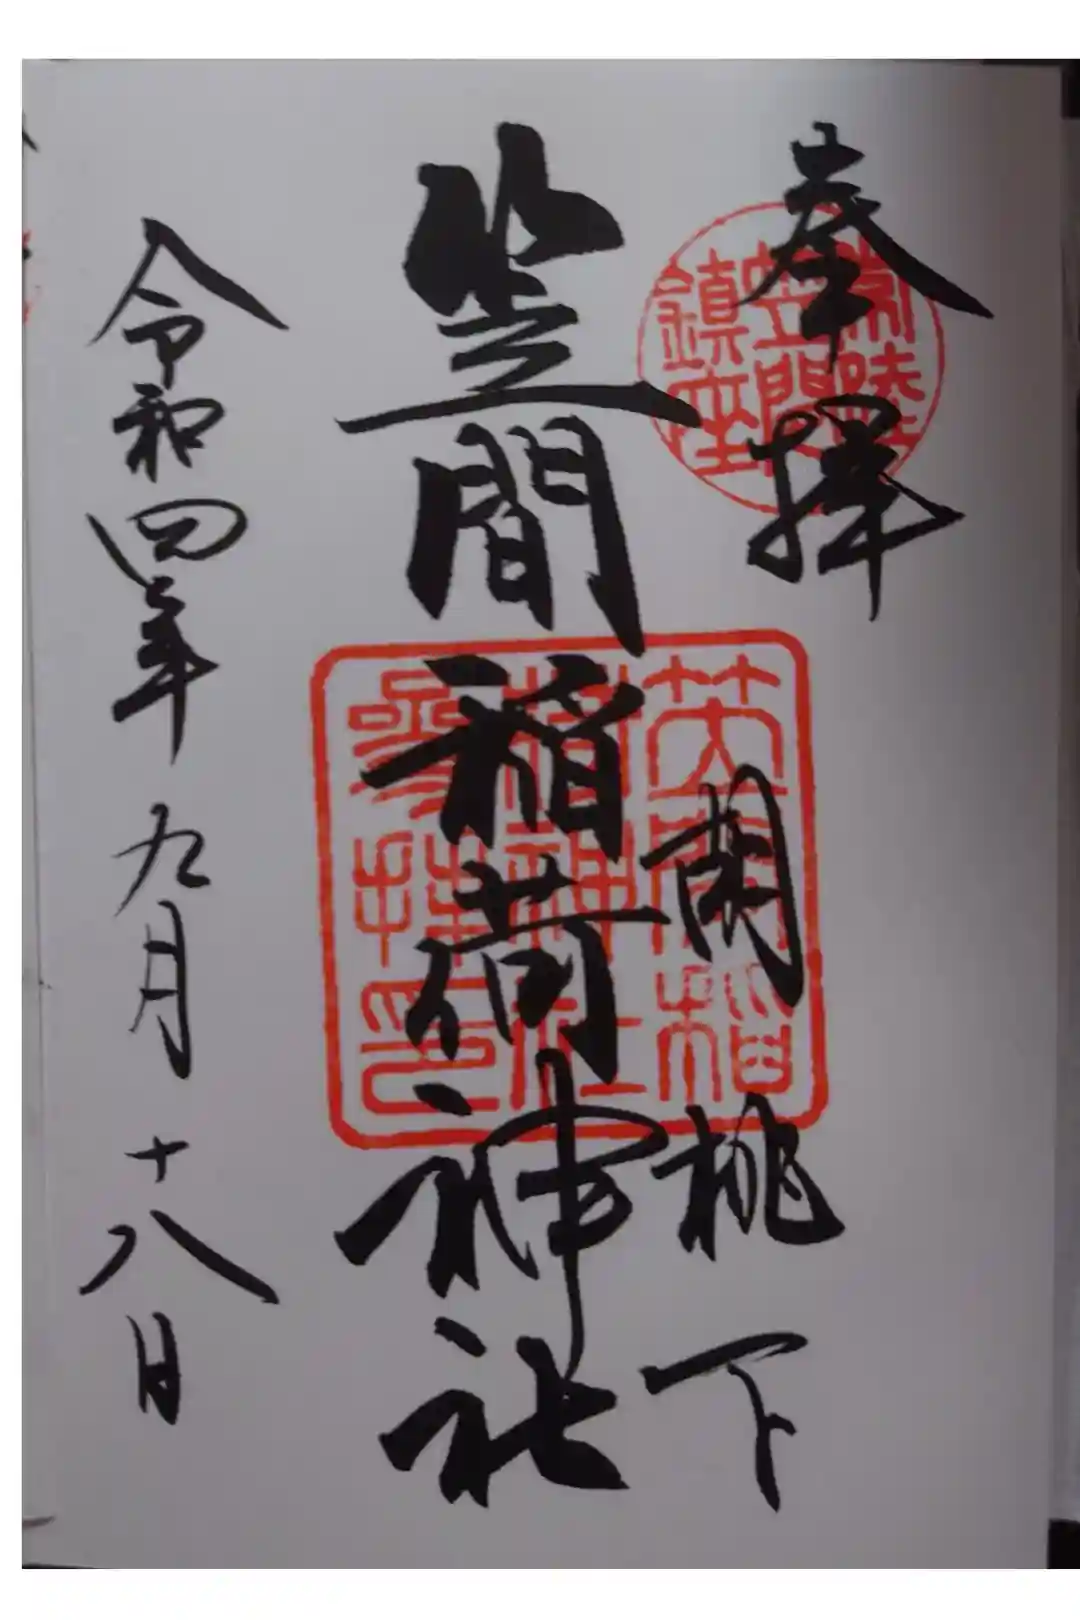 奉拝
胡桃下
笠間稲荷神社
令和四年九月十八日
常陸
笠間
鎮座
笠間稲
荷神社
参拝印